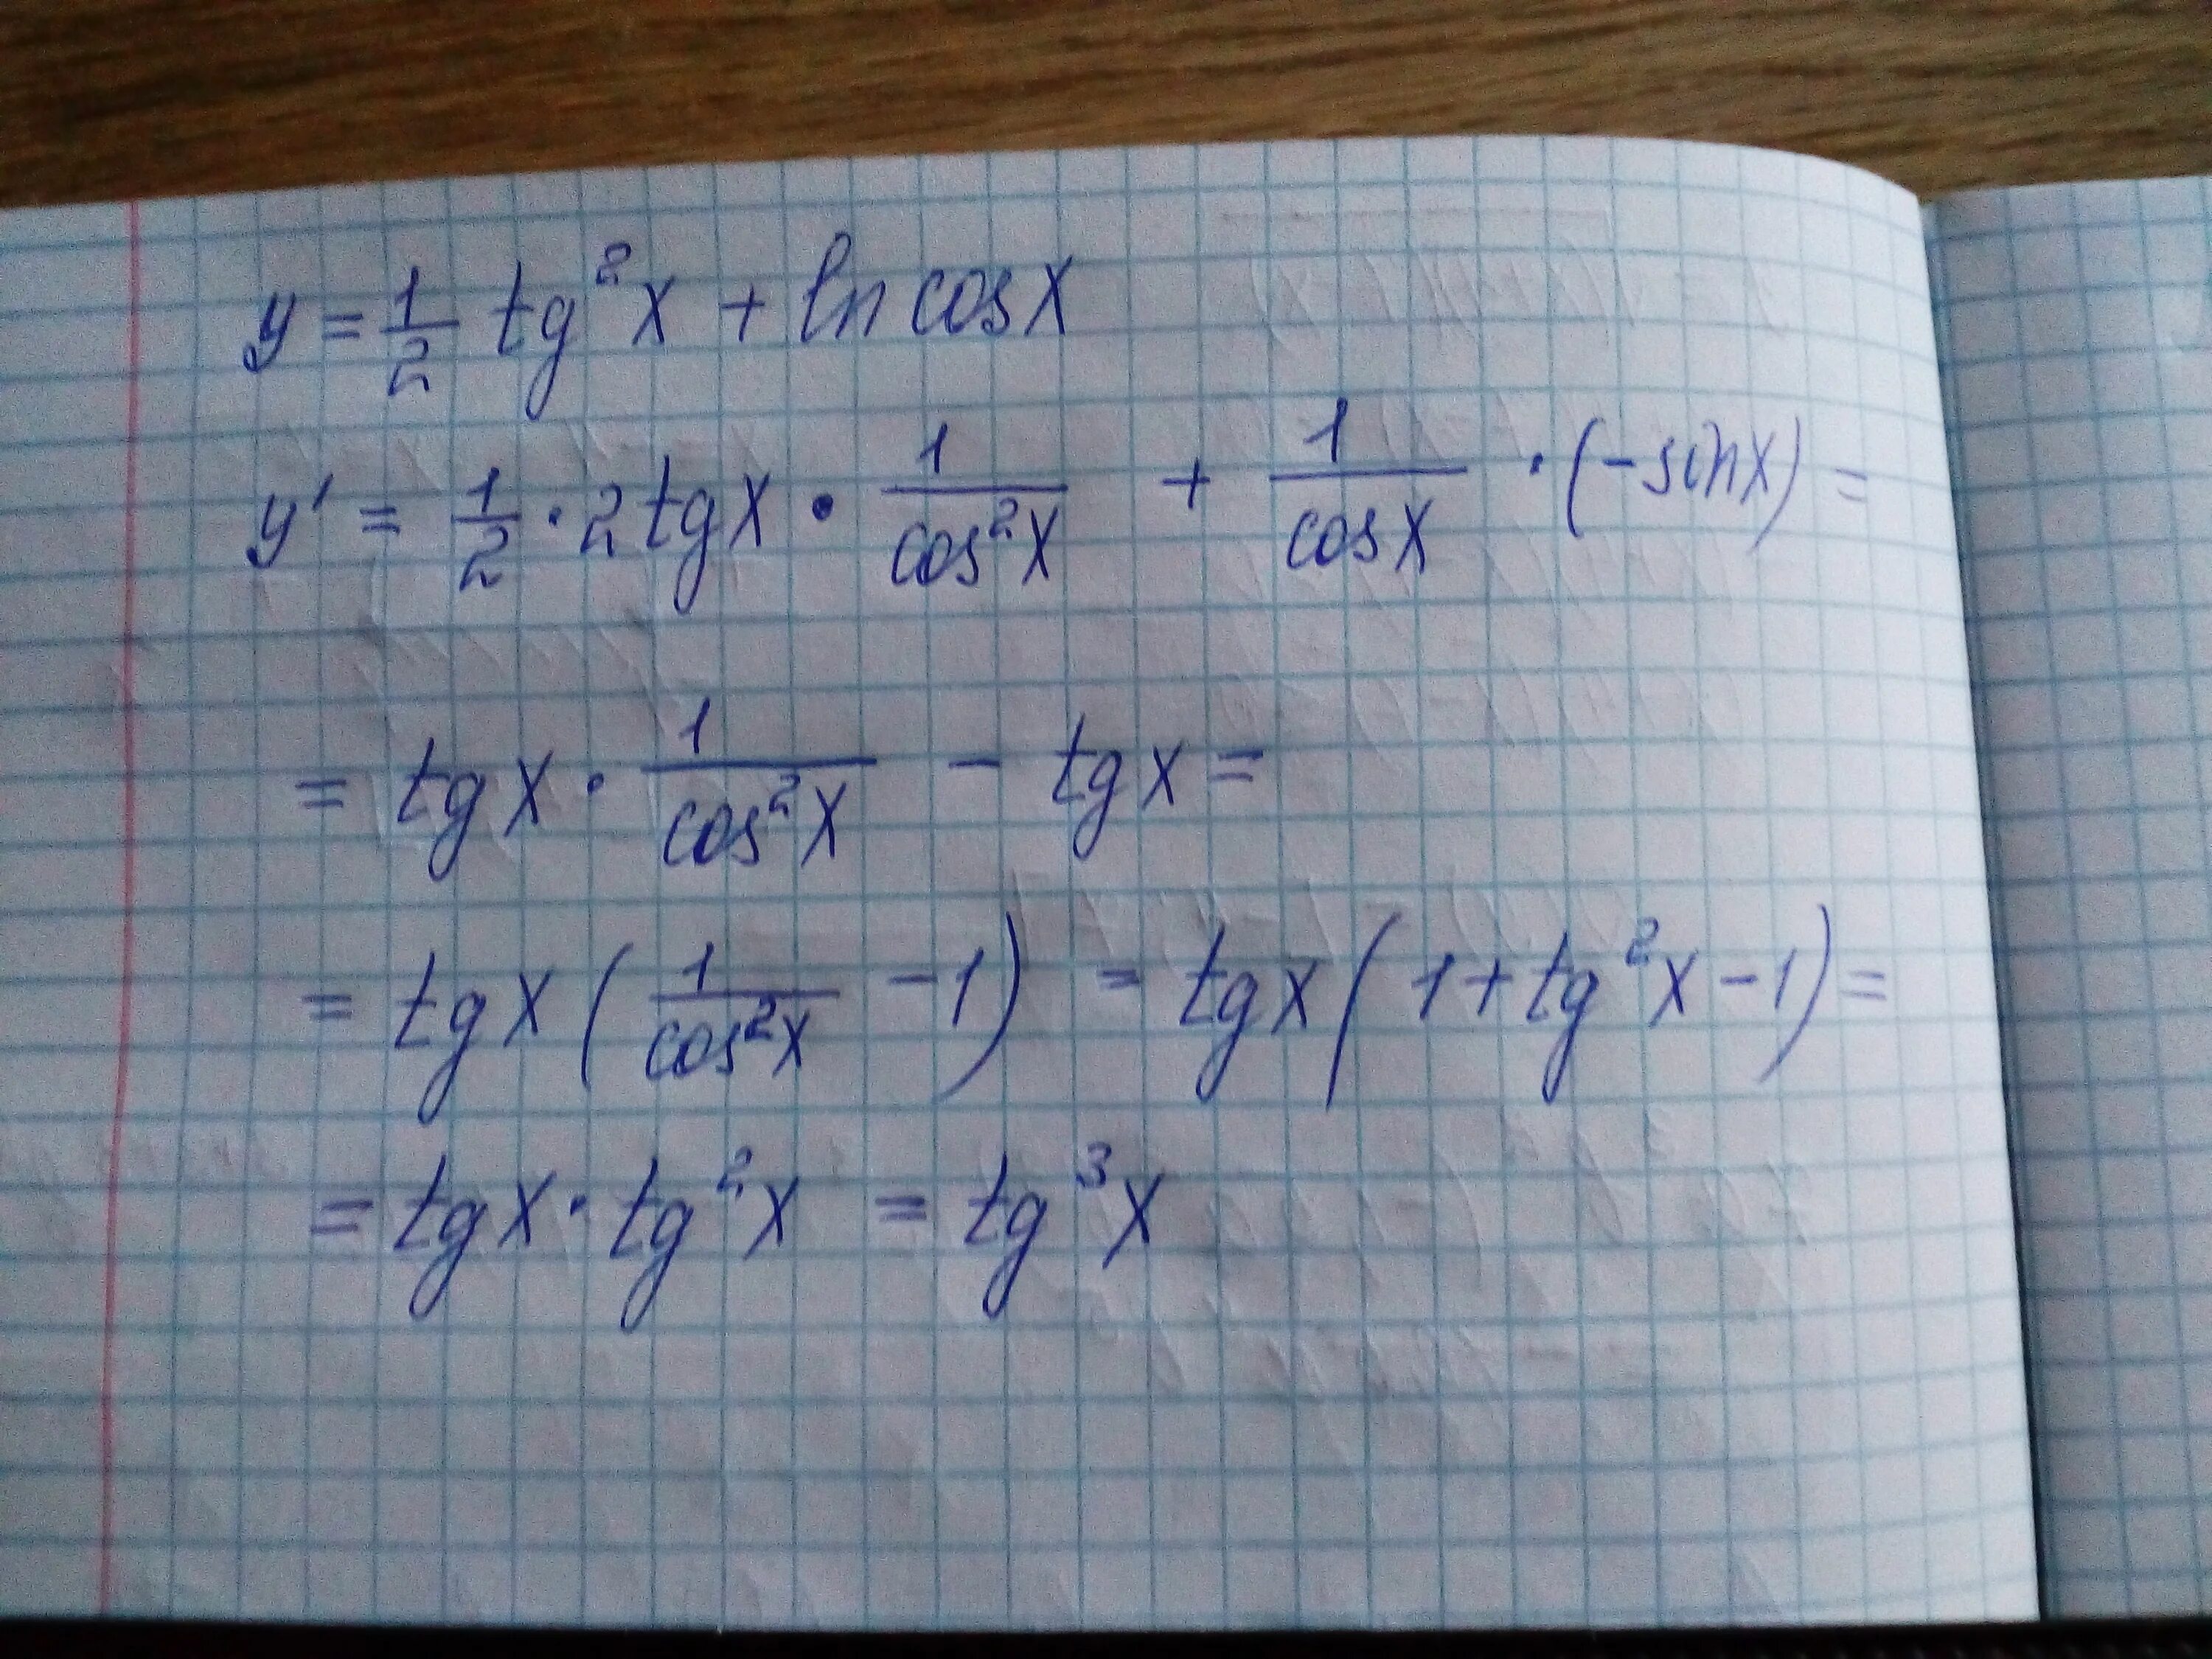 y = 1/2 tg²x + ln cosx
y' = 1/2 · 2tgx · 1/cos²x + 1/cosx · (-sinx) =
= tgx · 1/cos²x - tgx =
= tgx (1/cos²x - 1) = tgx (1 + tg²x - 1) =
= tgx · tg²x = tg³x